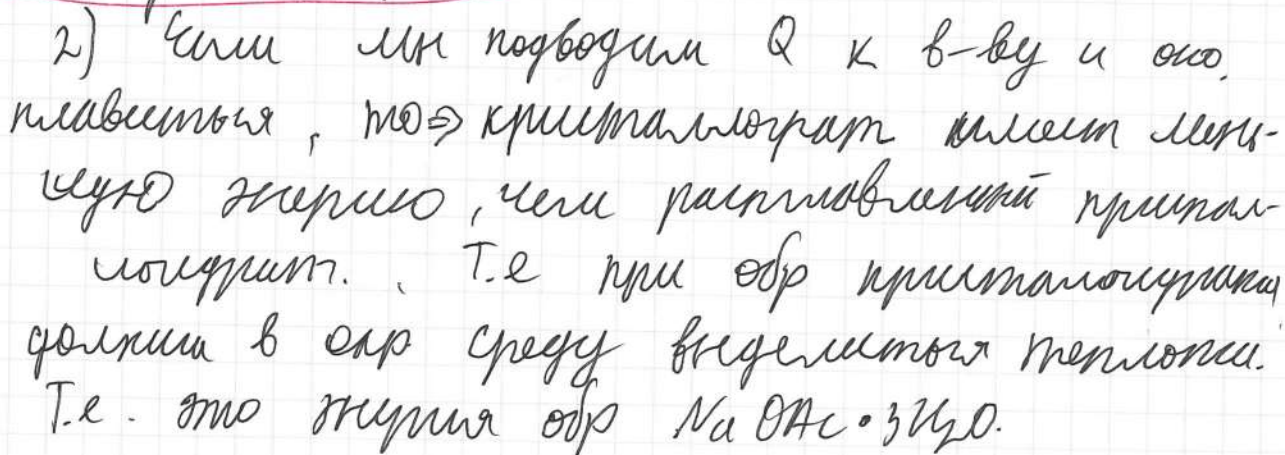 2) Если мы подводим Q к в-ву и оно
плавиться, то⇒ кристаллограт имеет мень-
шую энергию, чем расплавленный кристал-
логидрат. Т.е при обр кристалогидрата
должна в окр среду выделиться теплота.
Т.е. это энергия обр NaOAc•3H₂O.